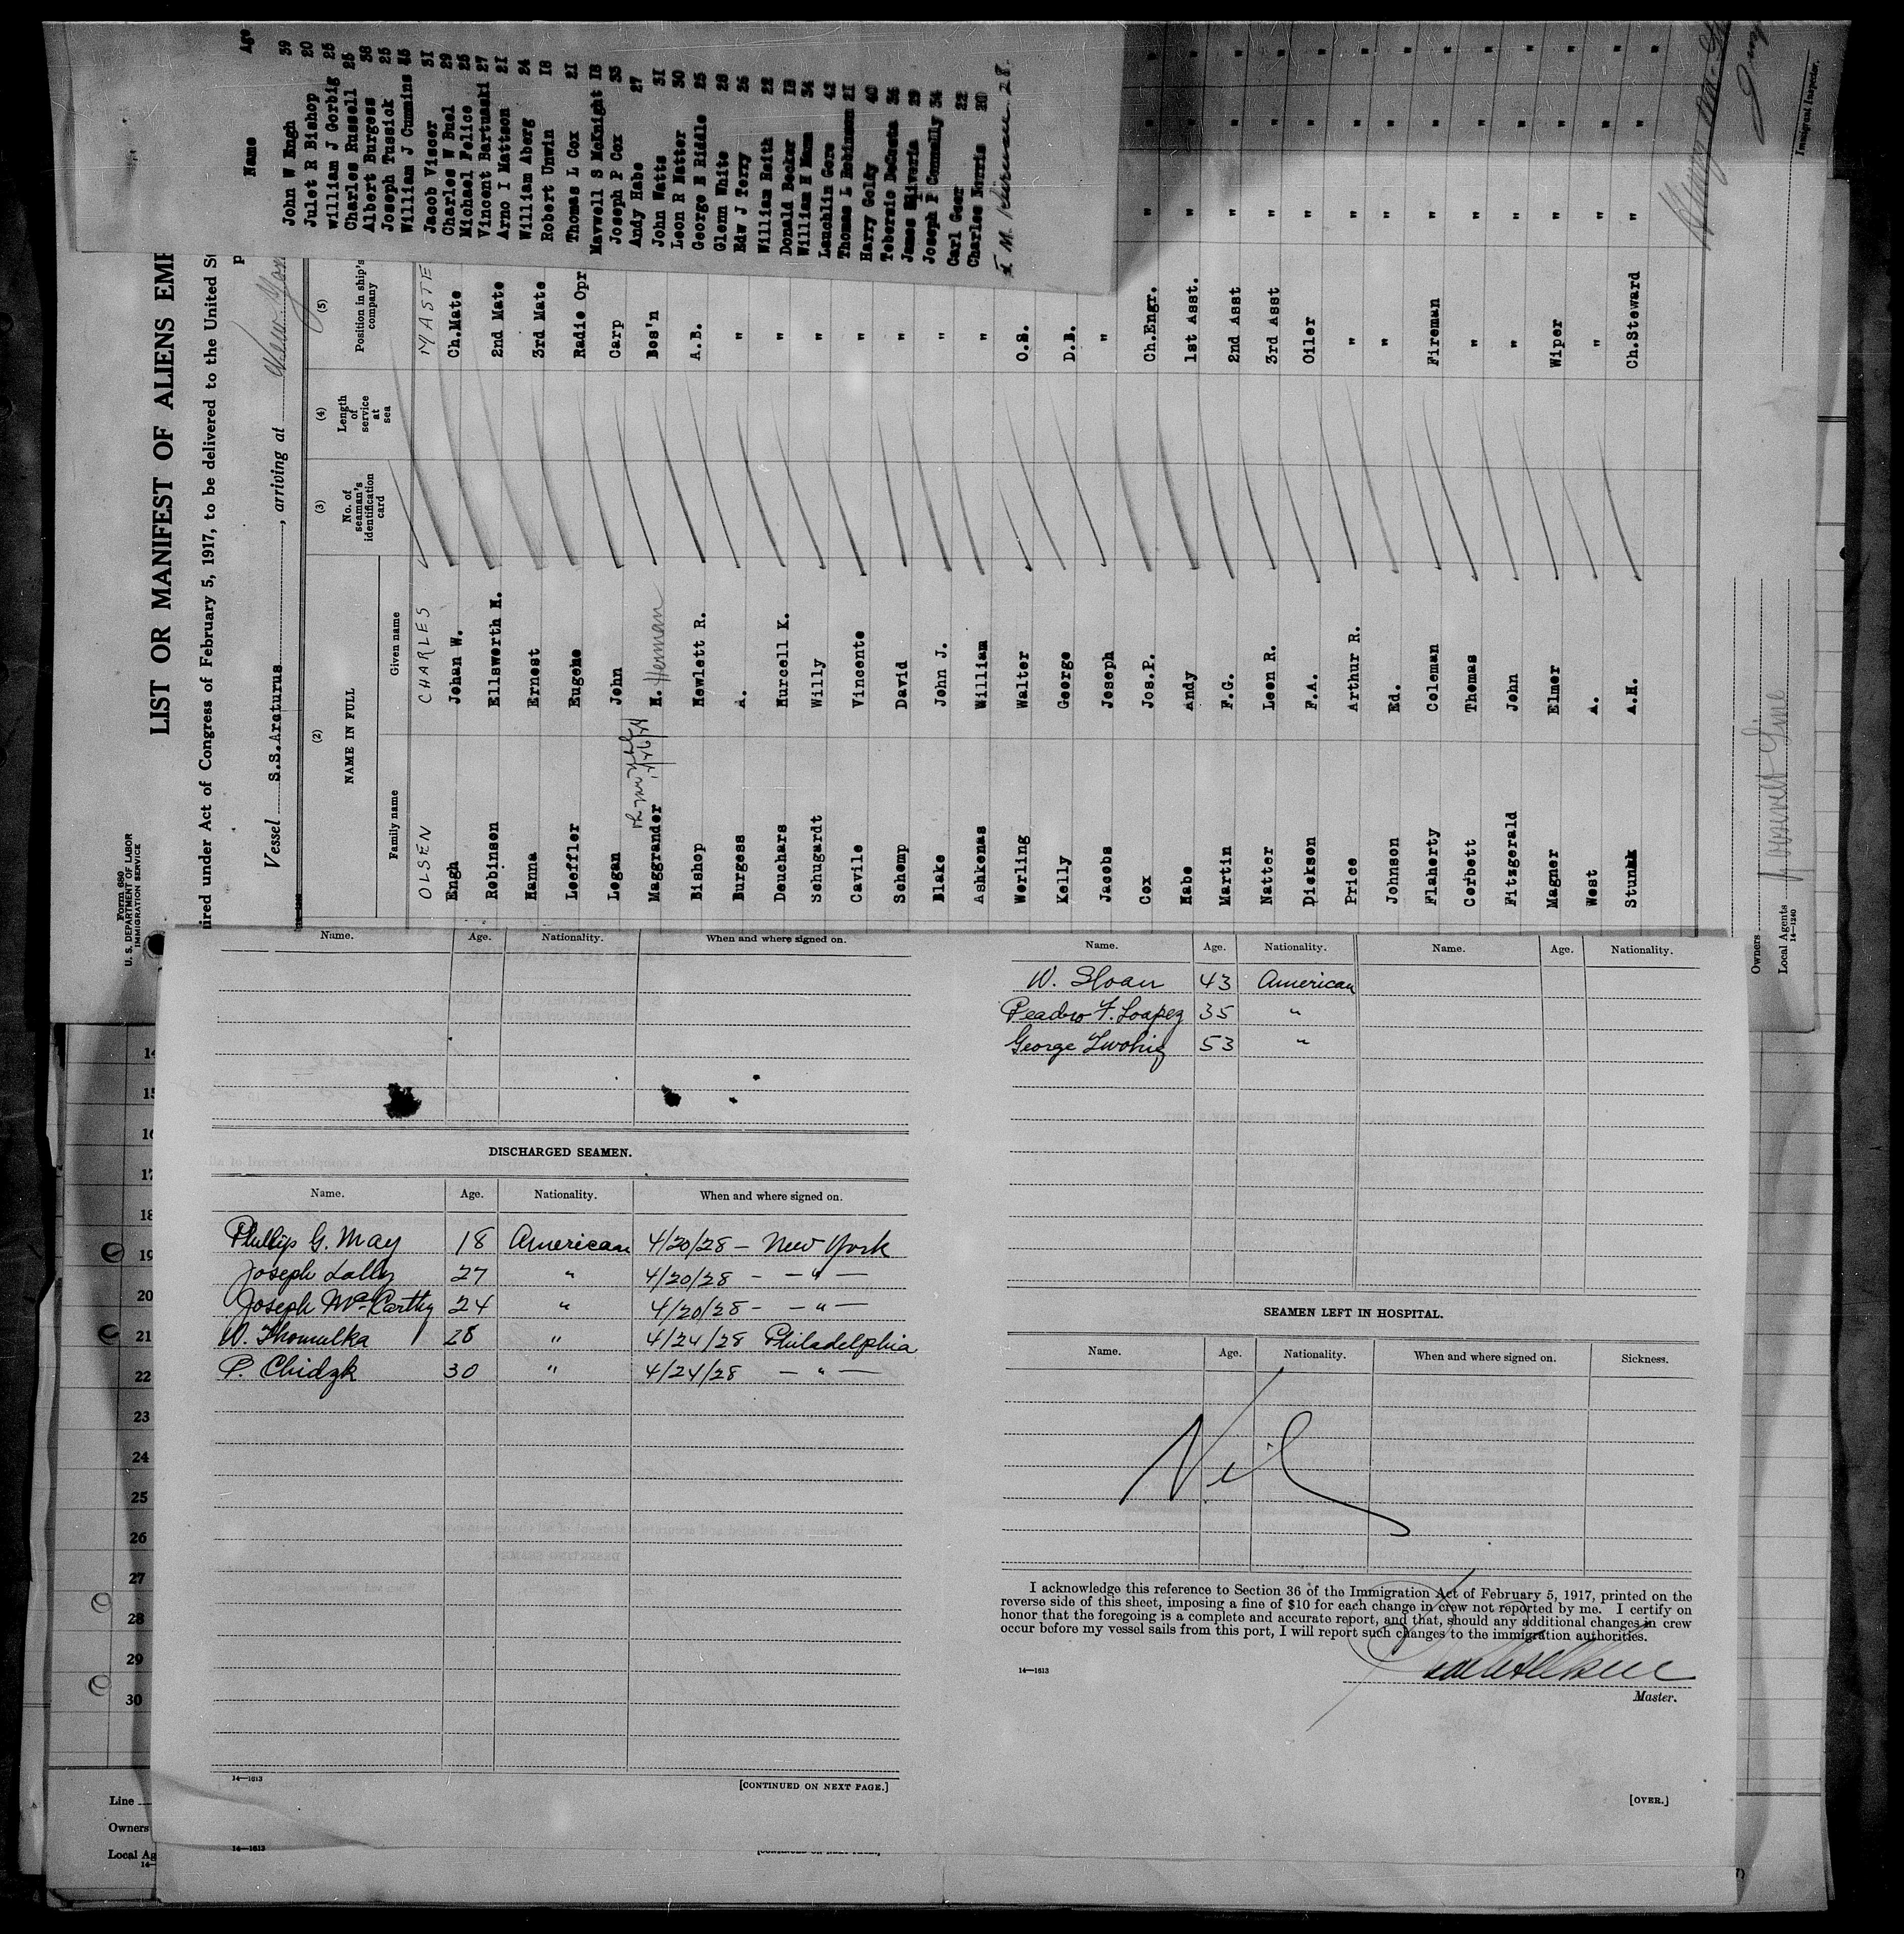 Name Age
John W Engh 39
Julet R Bishop 20
William J Gorbig 25
Charles Russell 25
Albert Burgess 38
Joseph Tussick 25
William J Cummins 45
Jacob Viscer 31
Charles W Buel 29
Michael Felice 25
Vincent Bartuaski 27
Arno I Mattson 21
William Aberg 24
Robert Unwin 18
Thomas L Cox 21
Mavwell S McKnight 18
Joseph P Cox 33
Andy Habe 27
John Watts 31
Leon R Natter 30
George E Riddle 25
Glenn White 28
Edw J Terry 26
William Reith 22
Donald Becker 18
William H Mann 34
Lauchlin Gore 42
Thomas L Robinson 21
Harry Colby 40
Teberzio DaCasta 36
James Eliveria 29
Joseph F Connelly 34
Carl Geer 22
Charles Norris 20
Form 680
U. S. DEPARTMENT OF LABOR
IMMIGRATION SERVICE
LIST OR MANIFEST OF ALIENS EMP
ired under Act of Congress of February 5, 1917, to be delivered to the United S
Vessel S.S.Araturus, arriving at New York
(2) (3) (4) (5)
NAME IN FULL
Family name Given name
No. of seaman's identification card
Length of service at sea
Position in ship's company
OLSEN CHARLES MASTE
Engh Johan W. Ch.Mate
Robinson Ellsworth H. 2nd Mate
Hanna Ernest 3rd Mate
Loeffler Eugene Radio Opr
Logan John Carp
Maggrander H. Herman Bos'n
Bishop Hewlett R. A.B.
Burgess A. "
Deuchars Murcell K. "
Schugardt Willy "
Cavile Vincente "
Schemp David "
Blake John J. "
Ashkenas William "
Werling Walter O.S.
Kelly George D.B.
Jacobs Joseph "
Cox Jos.P. Ch.Engr. "
Habe Andy 1st Asst. "
Martin F.G. 2nd Asst "
Natter Leon R. 3rd Asst "
Dickson F.A. Oiler "
Price Arthur R. " "
Johnson Ed. " "
Flaherty Coleman Fireman "
Corbett Thomas " "
Fitzgerald John " "
Magner Elmer Wiper "
West A. " "
Stunkk A.H. Ch.Steward "
Immigrant Inspector.
Owners
Local Agents
14—1240
Name. Age. Nationality. When and where signed on.
DISCHARGED SEAMEN.
Name. Age. Nationality. When and where signed on.
Phillip G. May 18 American 4/20/28 — New York
Joseph Lally 27 " 4/20/28 — — " —
Joseph McCarthy 24 " 4/20/28 — — " —
W. Thomulka 28 " 4/24/28 Philadelphia
P. Chidzk 30 " 4/24/28 — " —
14—1613
[CONTINUED ON NEXT PAGE.]
14—1613
Name. Age. Nationality. Name. Age. Nationality.
W. Sloan 43 American
Peadro F. Loapez 35 "
George Twohig 53 "
SEAMEN LEFT IN HOSPITAL.
Name. Age. Nationality. When and where signed on. Sickness.
Nil
I acknowledge this reference to Section 36 of the Immigration Act of February 5, 1917, printed on the
reverse side of this sheet, imposing a fine of $10 for each change in crew not reported by me. I certify on
honor that the foregoing is a complete and accurate report, and that, should any additional changes in crew
occur before my vessel sails from this port, I will report such changes to the immigration authorities.
14—1613
Master.
[OVER.]
14
15
16
17
18
19
20
21
22
23
24
25
26
27
28
29
30
Line
Owners
Local Ag
14—